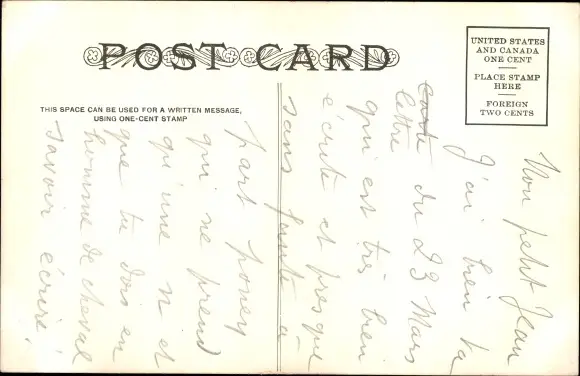 POST CARD
THIS SPACE CAN BE USED FOR A WRITTEN MESSAGE,
USING ONE-CENT STAMP
UNITED STATES
AND CANADA
ONE CENT
PLACE STAMP
HERE
FOREIGN
TWO CENTS
Mon petit Jean
J'ai bien ta
lettre
carte du 23 Mars
qui est très bien
écrite et presque
sans faute à
part poney
qui ne prend
qu'une n et
que tu dois en
homme de cheval
savoir écrire!